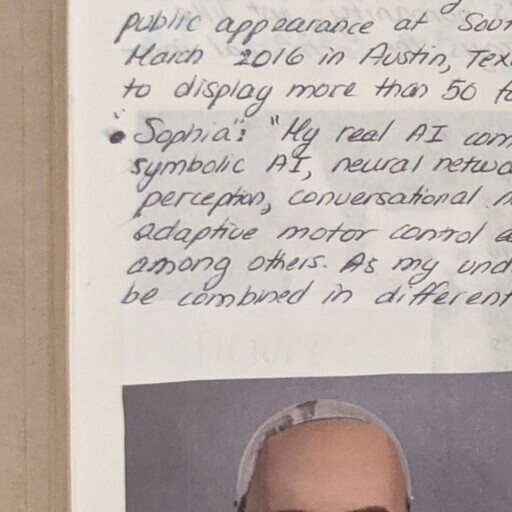 public appearance at Sou
March 2016 in Austin, Tex
to display more than 50 f
• "Sophia": "My real AI com
symbolic AI, neural netwo
perception, conversational
adaptive motor control a
among others. As my und
be combined in different